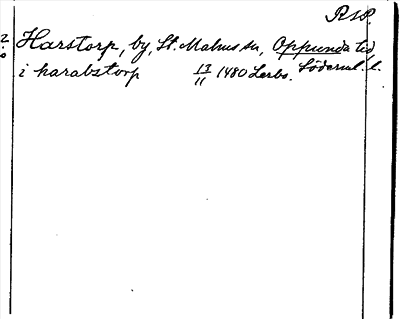 R18.
Harstorp, by, St. Malms sn, Oppunda hd,
Söderml. l.
i harabstorp 13/11 1480 Lerbo.